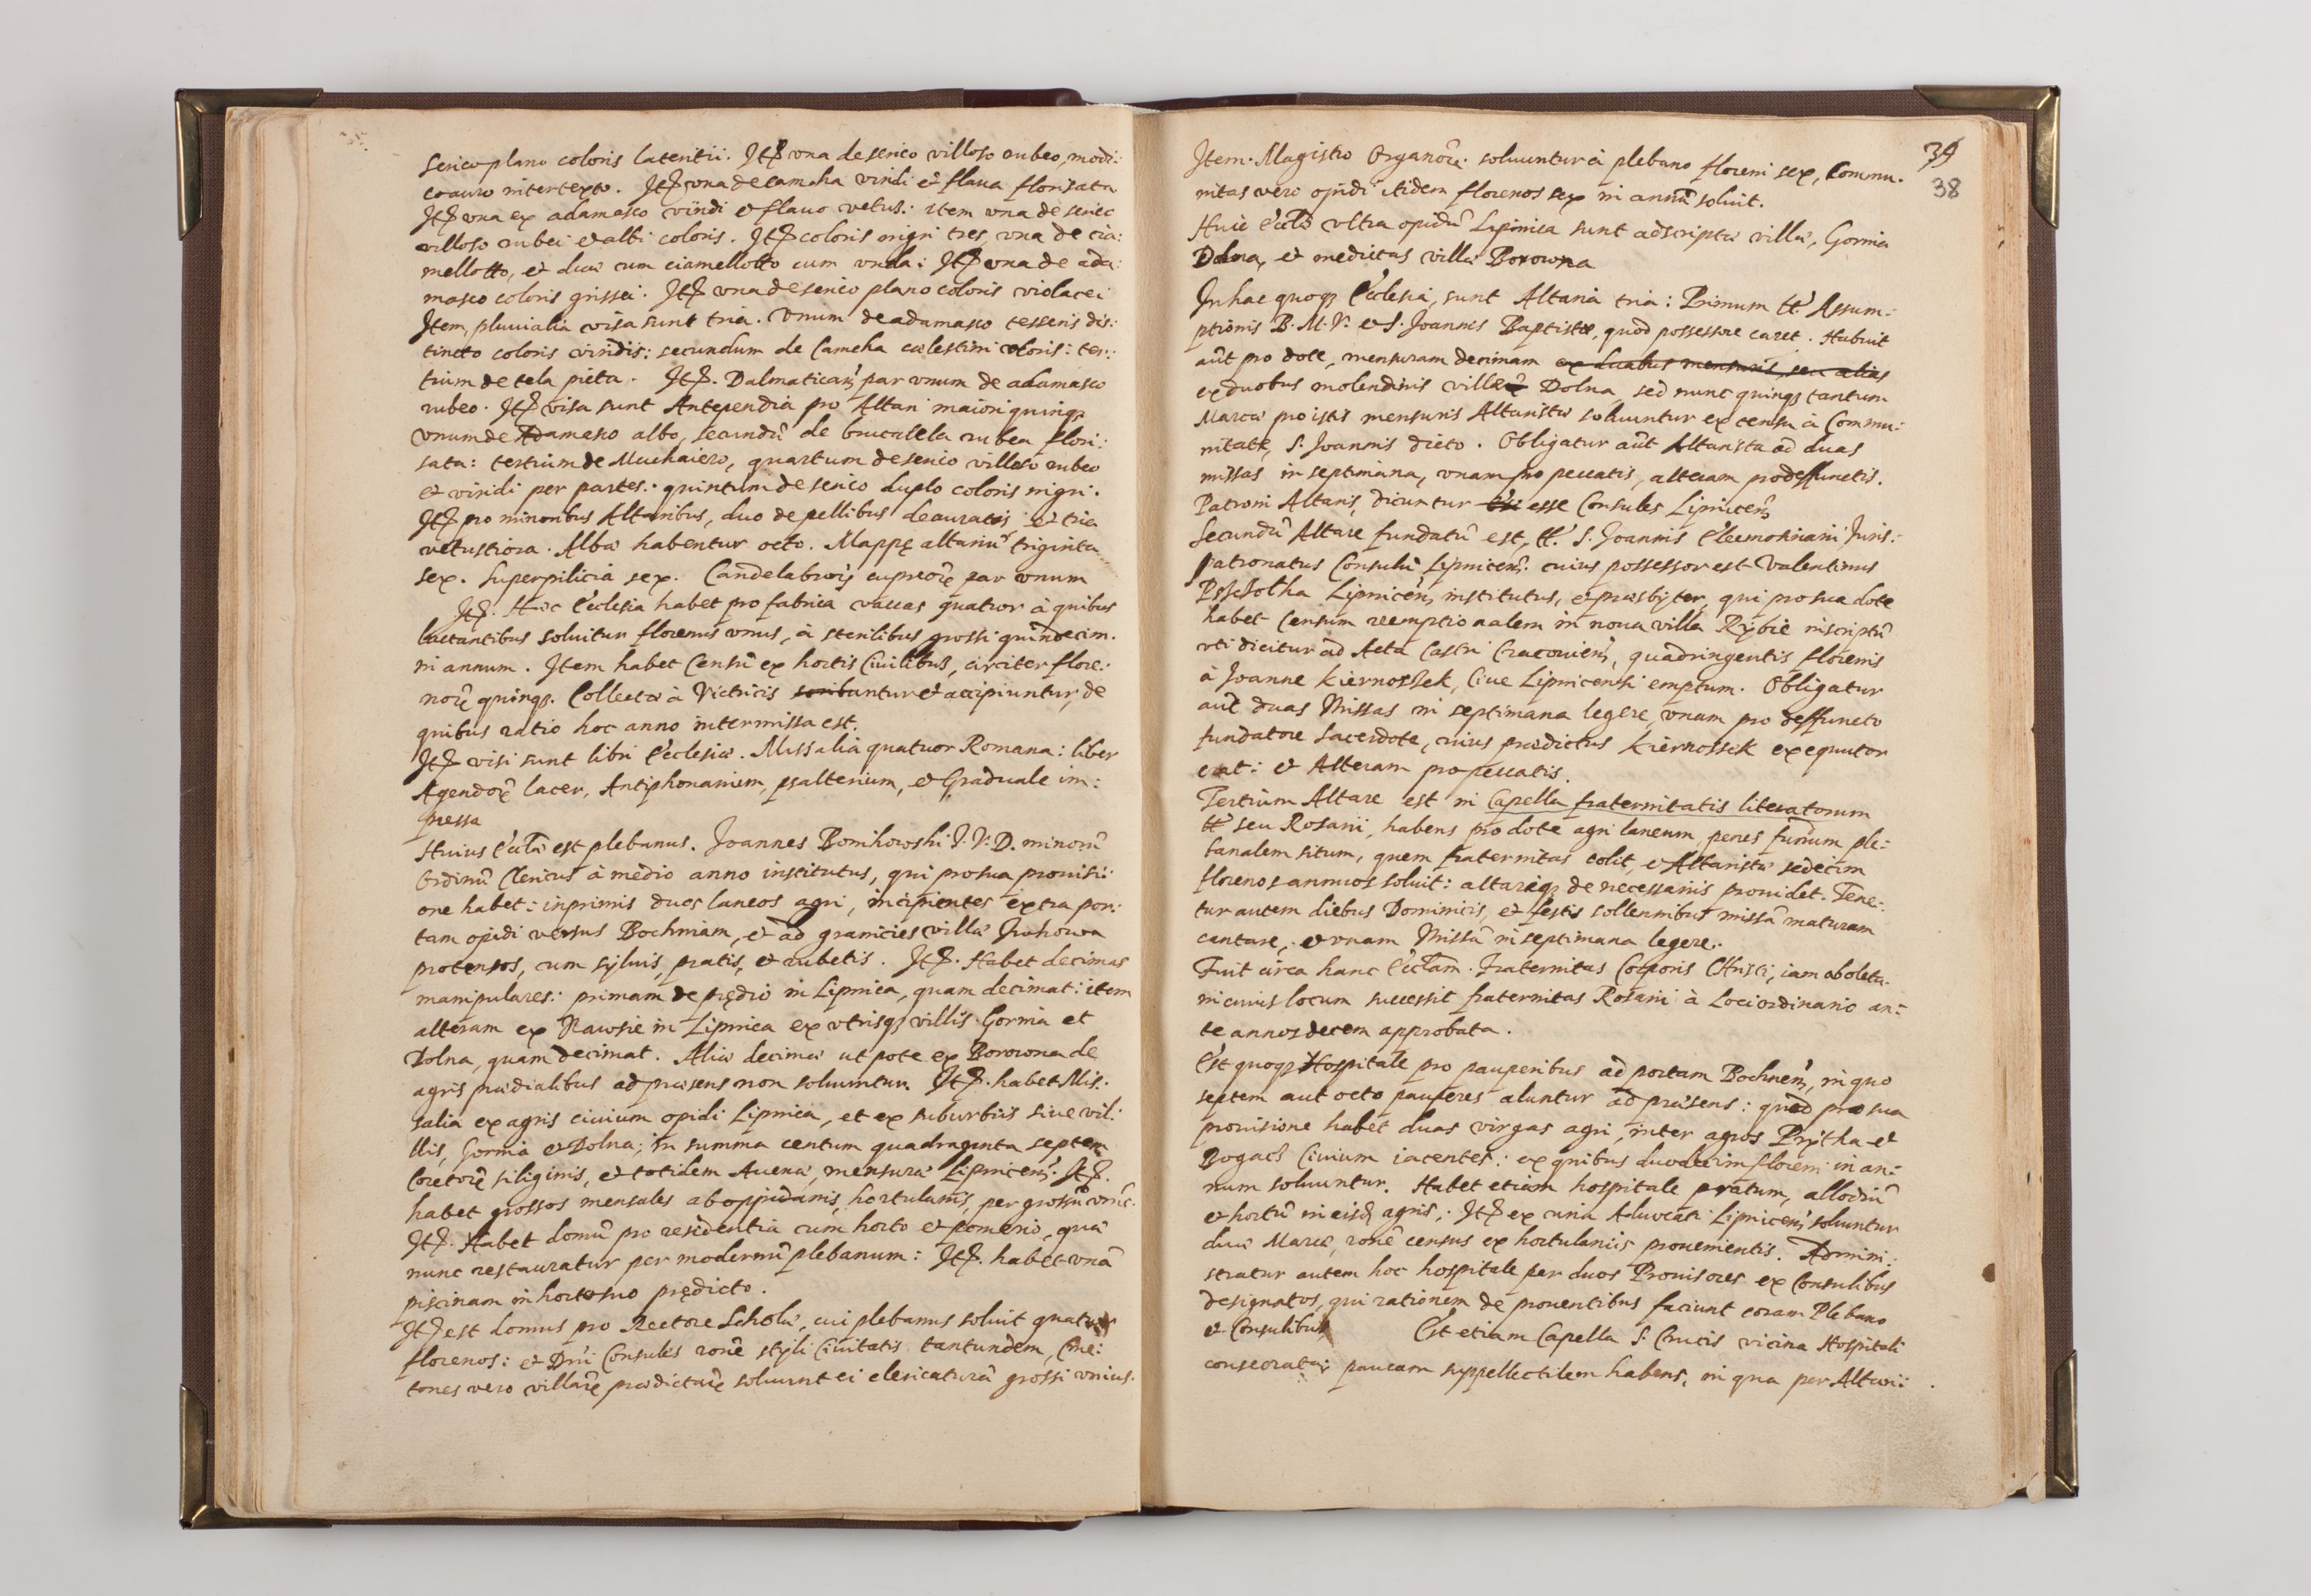 serico plano coloris lateritii. Itẽ una de serico villoso rubeo, modi:
co auro intertexto. Itẽ una de camcha viridi et flava florisata
Itẽ una ex adamasco viridi et flavo vetus: item una de seric
villoso rubei et albi coloris. Itẽ coloris nigri tres, una de cia:
mellotto, et duæ cum ciamellotto cum unda: Itẽ una de ada:
masco coloris grissei. Itẽ una de serico plano coloris violacei
Item, pluvialia visa sunt tria. Unum de adamasco tesseris dis:
tincto coloris viridis: secundum de Camcha cœlestini coloris: ter:
tium de tela picta. Itẽ. Dalmaticarũ par unum de adamasco
rubeo. Itẽ visa sunt Antependia pro Altari maiori quinqꝫ
unum de Adamasco albo, secundũ de brucatela rubea flori:
sata: tertium de Muchaiero, quartum de serico villoso rubeo
et viridi per partes: quintum de serico duplo coloris nigri.
Itẽ pro minoribus Altaribus, duo de pellibus deauratis, et tria
vetustiora. Albæ habentur octo. Mappę altariũ triginta
sex. Superpilicia sex. Candelabrorũ cupreorũ par unum
Itẽ. Hæc Ecclesia habet pro fabrica vaccas quatuor à quibus
lactantibus solvitur florenus unus, à sterilibus grossi quindecim.
in annum. Item habet Censũ ex hortis Civilibus, circiter flore:
norũ quinqꝫ. Collectæ à Victricis scribantur et accipiuntur, de
quibus ratio hoc anno intermissa est.
Itẽ visi sunt libri Ecclesiæ. Missalia quatuor Romana: liber
Agendorũ lacer, Antiphonarium, psalterium, et Graduale im:
pressa
Huius Ecclæ est plebanus. Joannes Bomihowski J. V. D. minorũ
Ordinũ Clericus à medio anno institutus, qui pro sua provisi:
one habet: inprimis duos laneos agri, incipientes extra por:
tam opidi versus Bochniam, et ad granicies villæ
protensos, cum sylvis, pratis, et rubetis. Itẽ. Habet decimas
manipulares: primam de prędio in Lipnica, quam decimat: item
alteram ex Nawsie in Lipnica ex utrisqꝫ villis Gorna et
Dolna, quam decimat. Aliæ decimæ ut pote ex Borowna de
agris prædialibus ad præsens non solvuntur. Itẽ. habet Mis:
salia ex agris civium opidi Lipnica, et ex suburbiis sive vil:
llis, Gorna et Dolna; in summa centum quadraginta septem
Coretorũ siliginis, et totidem Avenæ, mensuræ Lipnicen̄. Itẽ.
habet grossos mensales ab oppidanis, hortulanis, per grossũ unũ.
Itẽ. Habet domũ pro residentia cum horto et pomerio, quæ
nunc restauratur per modernũ plebanum: Itẽ. habet unã
piscinam in horto suo prędicto.
Itẽ est domus pro Rectore Scholæ, cui plebanus solvit quatuor
florenos: et Dni Consules ronẽ styli Civitatis tantundem, Cme:
tones vero villarũ prædictarũ solvunt ei clericaturã grossi unius.
39
38
Item. Magistro Organorũ solvuntur à plebano floreni sex, Commu:
nitas vero opidi itidem florenos sex in annũ solvit.
Huic Ecclæ ultra opidũ Lipnica sunt adscriptæ villæ, Gorna
Dolna, et medietas villæ Borowna
In hac quoqꝫ Ecclesia, sunt Altaria tria: Primum tt̃ Assum:
ptionis B. M. V. et S. Joannis Baptistæ, quod possessore caret. Habuit
aũt pro dote, mensuram decimam ex duabus mensuris, seu alias
ex duobus molendinis villæ Dolna, sed nunc quinqꝫ tantum
Marcæ pro istis mensuris Altaristæ solvuntur ex censu à Commu:
nitate, S. Joannis dicto. Obligatur aũt Altarista ad duas
missas in septimana, unam pro peccatis, alteram pro deffunctis.
Patroni Altaris, dicuntur esse Consules Lipnicen̄
Secundũ Altare fundatũ est, tt̃. S. Joannis Eleemosinarii Juris:
patronatus Consulũ Lipnicen̄. cuius possessor est Valentinus
Lipnicen̄, institutus, et præsbyter, qui pro sua dote
habet Censum reemptionalem in nova villa Rybie inscriptũ
uti dicitur ad Acta Castri Cracovien̄, quadringentis florenis
à Joanne Kiernossek, Cive Lipnicensi emptum. Obligatur
aũt duas Missas in septimana legere, unam pro deffuncto
fundatore sacerdote, cuius prædictus Kiernossek exequutor
erat: et Alteram pro peccatis.
Tertium Altare est in Capella fraternitatis literatorum
tt̃ seu Rosarii, habens pro dote agri laneum, penes fundum ple:
banalem situm, quem fraternitas colit, et Altaristæ sedecim
florenos annuos solvit: altareqꝫ de necessariis providet. Tene:
tur autem diebus Dominicis, et festis sollennibus missã maturam
cantare, et unam Missã in septimana legere.
Fuit circa hanc Ecclam. Fraternitas Corporis Christi, iam aboleta.
in cuius locum successit fraternitas Rosarii à Loci ordinario an:
te annos decem approbata.
Est quoqꝫ Hospitale pro pauperibus ad portam Bochnen̄, in quo
septem aut octo pauperes aluntur ad præsens: quod pro sua
provisione habet duas virgas agri, inter agros Prytha et
Bogacz Civium iacentes: ex quibus duodecim floreni in an:
num solvuntur. Habet etiam hospitale pratum, allodiũ
et hortũ in eisdẽ agris: Itẽ ex curia Advocati Lipnicen̄ solvuntur
duæ Marcæ, ronẽ census ex hortulaniis provenientis. Admini:
stratur autem hoc hospitale per duos Provisores ex Consulibus
designatos, qui rationem de proventibus faciunt coram Plebano
et Consulibus Est etiam Capella S. Crucis vicina Hospitali
consecrata: paucam suppellectilem habens, in qua per Altari: